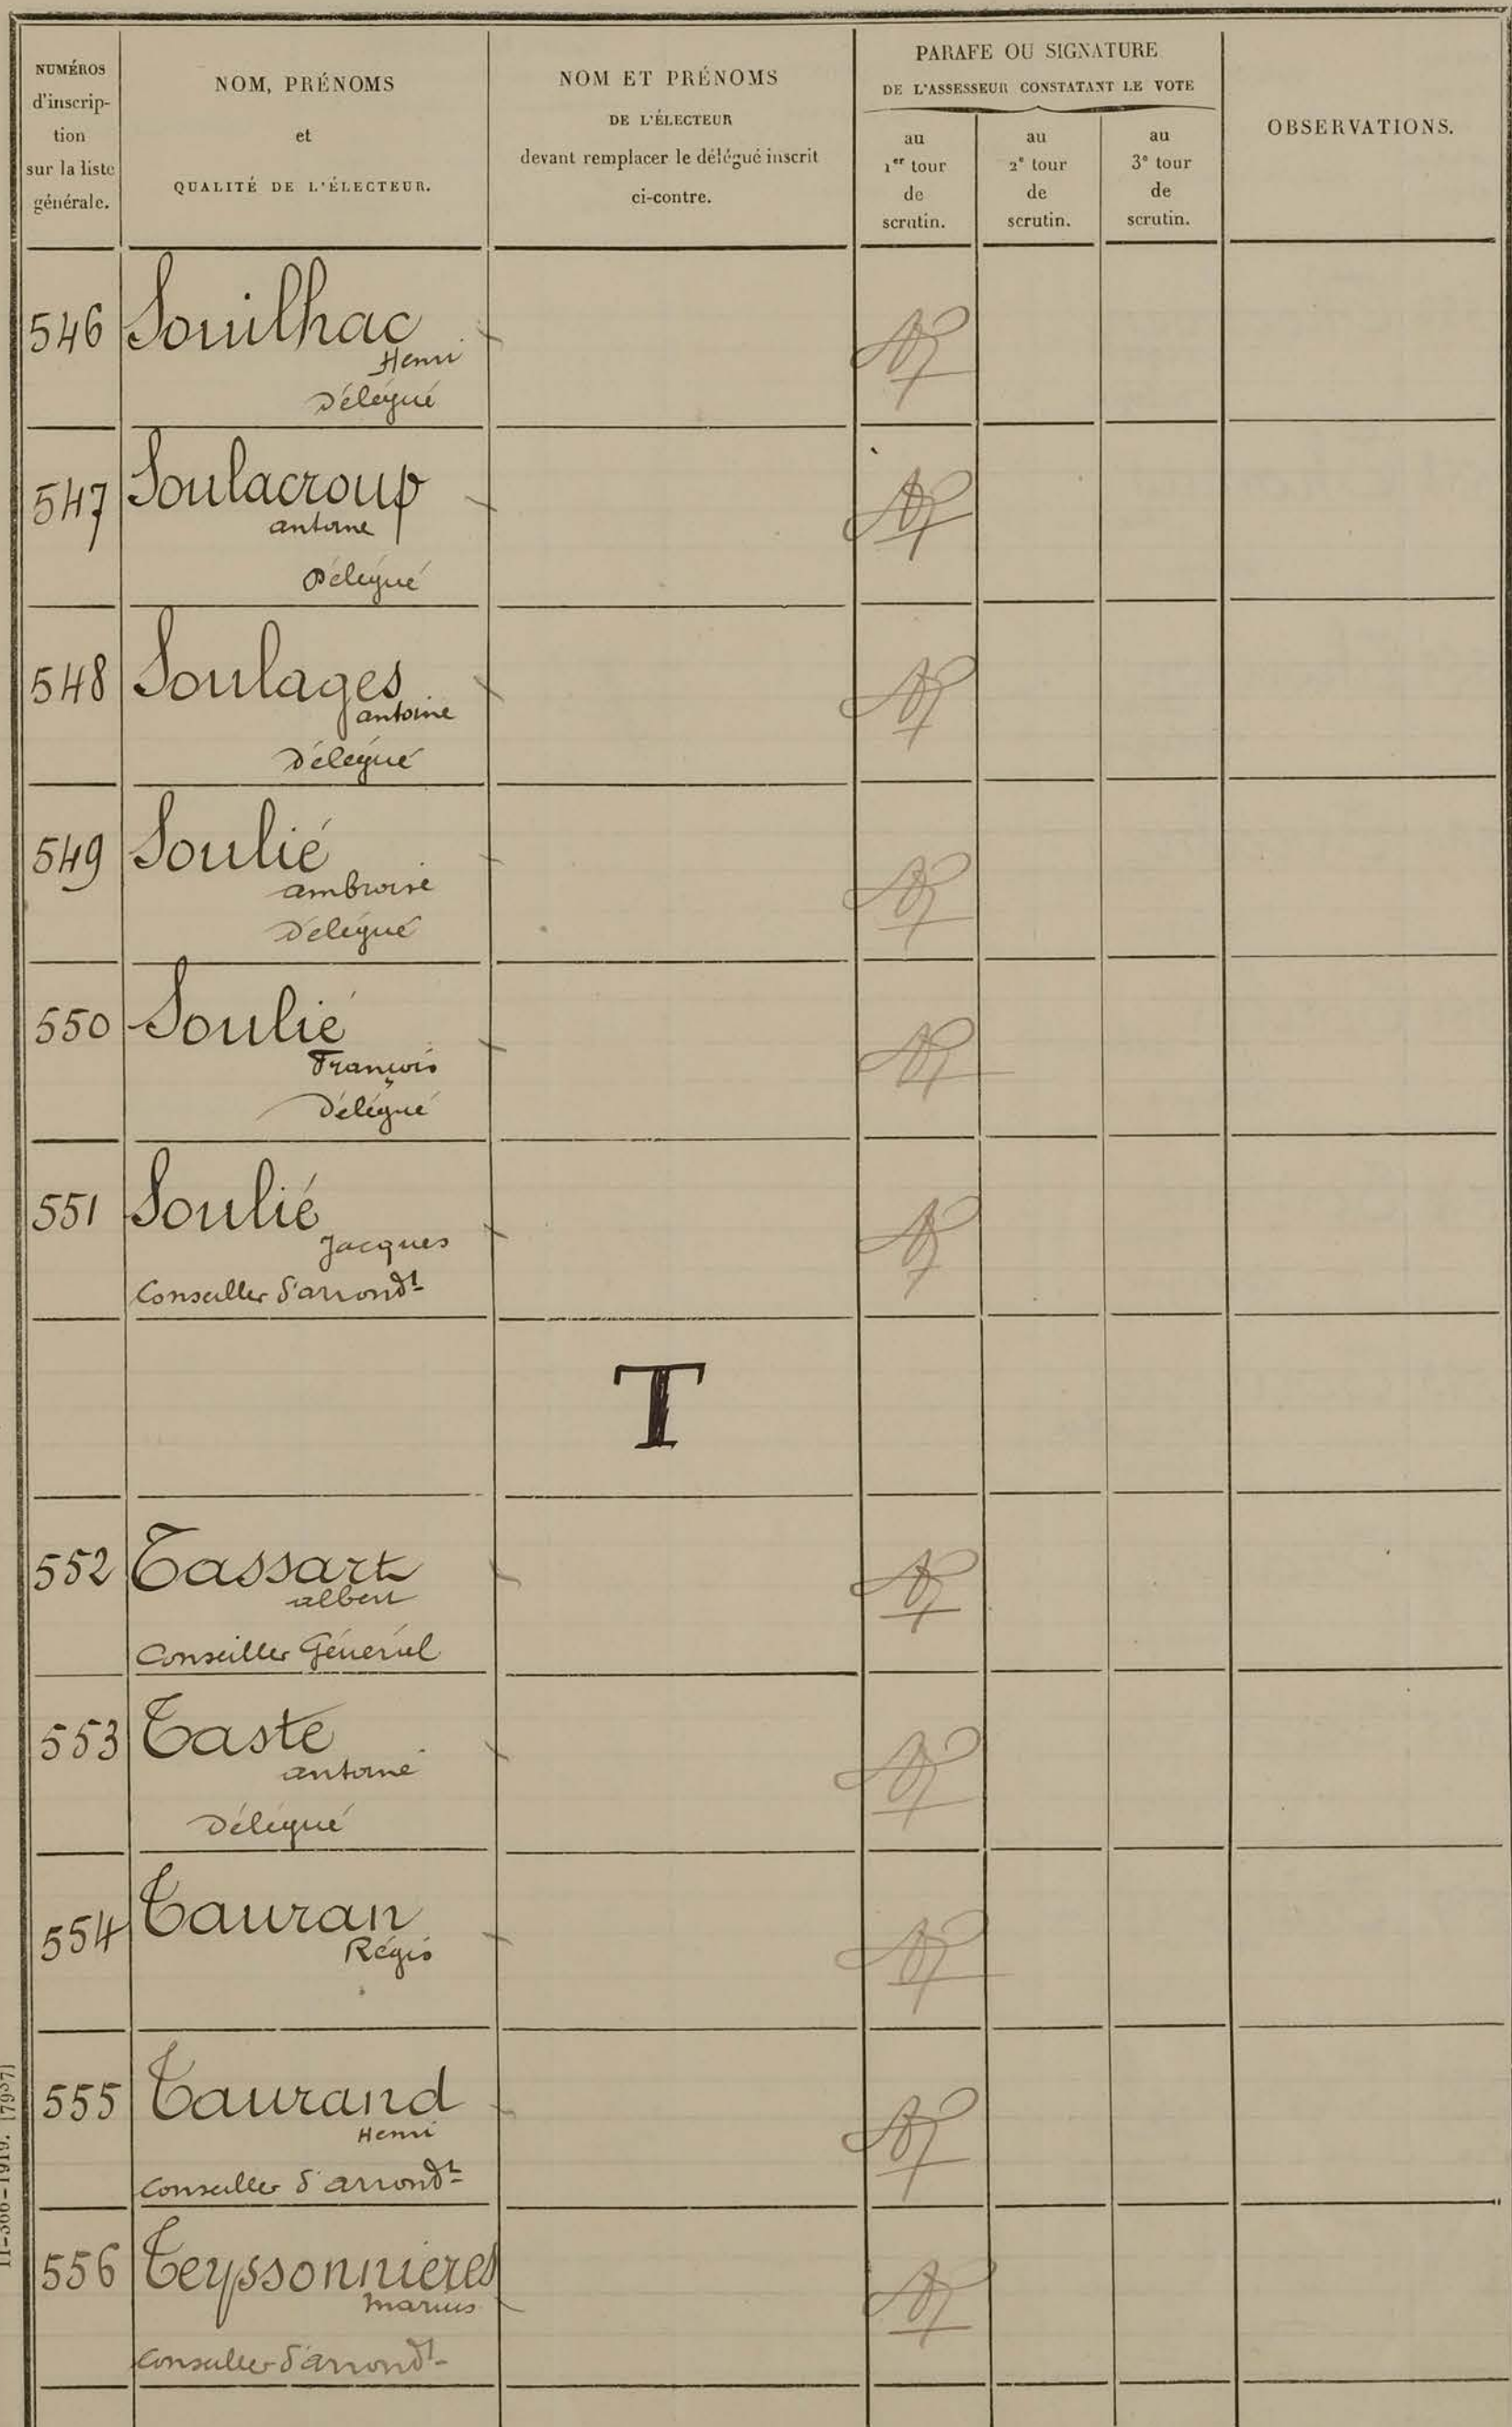 NUMÉROS
d'inscrip-
tion
sur la liste
générale.
NOM, PRÉNOMS
et
QUALITÉ DE L'ÉLECTEUR.
NOM ET PRÉNOMS
DE L'ÉLECTEUR
devant remplacer le délégué inscrit
ci-contre.
PARAFE OU SIGNATURE
DE L'ASSESSEUR CONSTATANT LE VOTE
au
1er tour
de
scrutin.
au
2e tour
de
scrutin.
au
3e tour
de
scrutin.
OBSERVATIONS.
546 Souilhac
Henri
Délégué
547 Soulacroup
antoine
Délégué
548 Soulages
antoine
Délégué
549 Soulié
ambroise
Délégué
550 Soulié
François
Délégué
551 Soulié
Jacques
Conseiller d'arrondt
T
552 Tassart
albert
Conseiller Général
553 Taste
antoine
Délégué
554 Tauran
Régis
555 Taurand
Henri
Conseiller d'arrondt
556 Teyssonnieres
Marius
Conseiller d'arrondt